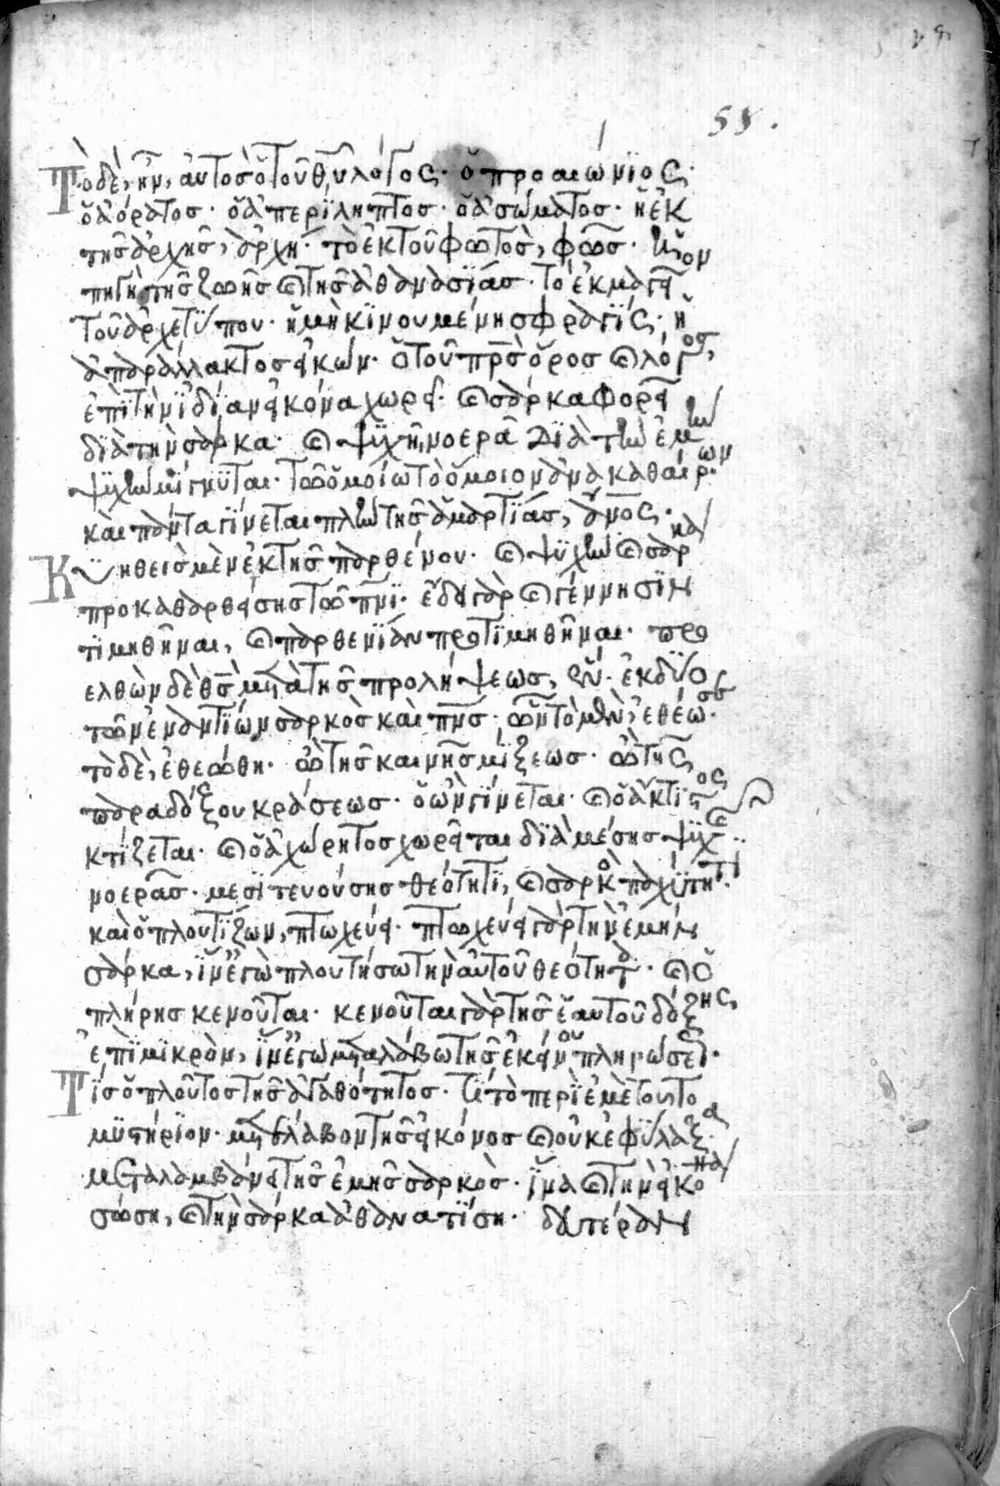 58.
Τὸ δὲ, ἦν, αὐτὸς ὁ τοῦ θ̅υ̅ λόγος· ὁ προαιώνιος·
ὁ ἀόρατος· ὁ ἀπερίληπτος· ὁ ἀσώματος· ἡ ἐκ
τῆς ἀρχῆς, ἀρχή· τὸ ἐκ τοῦ φωτὸς, φῶς· ἡ
πηγὴ τῆς ζωῆς καὶ τῆς ἀθανασίας· τὸ ἐκμαγεῖον
τοῦ ἀρχετύπου· ἡ μὴ κινουμένη σφραγίς· ἡ
ἀπαράλλακτος εἰκών· ὁ τοῦ π̅ρ̅ς̅ ὅρος καὶ λόγος,
ἐπὶ τὴν ἰδίαν εἰκόνα χωρεῖ· καὶ σάρκα φορεῖ
διὰ τὴν σάρκα· καὶ ψυχῇ νοερᾷ διὰ τὴν ἐμὴν
ψυχὴν μίγνυται· τῷ ὁμοίῳ τὸ ὅμοιον ἀνακαθαίρων·
καὶ πάντα γίνεται πλὴν τῆς ἁμαρτίας, ἄ̅ν̅ο̅ς̅·
Κυηθεὶς μὲν ἐκ τῆς παρθένου· καὶ ψυχὴν καὶ σάρκα
προκαθαρθείσης τῷ π̅ν̅ι̅· ἔδει γὰρ καὶ γέννησιν
τιμηθῆναι, καὶ παρθενίαν προτιμηθῆναι· προ
ελθὼν δὲ θ̅ς̅ μετὰ τῆς προλήψεως, ἓν ἐκ δύο
τῶν ἐναντίων σαρκὸς καὶ π̅ν̅ς̅· ὧν τὸ μὲν, ἐθέωσε·
τὸ δὲ, ἐθεώθη· ὢ τῆς καινῆς μίξεως· ὢ τῆς
παραδόξου κράσεως· ὁ ὢν γίνεται· καὶ ὁ ἄκτιστος
κτίζεται· καὶ ὁ ἀχώρητος χωρεῖται διὰ μέσης ψυχῆς
νοερᾶς· μεσιτευούσης θεότητι, καὶ σαρκὸς παχύτητι·
καὶ ὁ πλουτίζων, πτωχεύει· πτωχεύει γὰρ τὴν ἐμὴν
σάρκα, ἵν' ἐγὼ πλουτήσω τὴν αὐτοῦ θεότητα· καὶ ὁ
πλήρης κενοῦται· κενοῦται γὰρ τῆς ἑαυτοῦ δόξης,
ἐπὶ μικρὸν, ἵν' ἐγὼ μεταλάβω τῆς ἐκείνου πληρώσεως·
Τίς ὁ πλοῦτος τῆς ἀγαθότητος· τί τὸ περὶ ἐμὲ τοῦτο
μυστήριον· μετέλαβον τῆς εἰκόνος καὶ οὐκ ἐφύλαξα·
μεταλαμβάνει τῆς ἐμῆς σαρκὸς· ἵνα καὶ τὴν εἰκόνα
σώσῃ, καὶ τὴν σάρκα ἀθανατίσῃ· δευτέραν